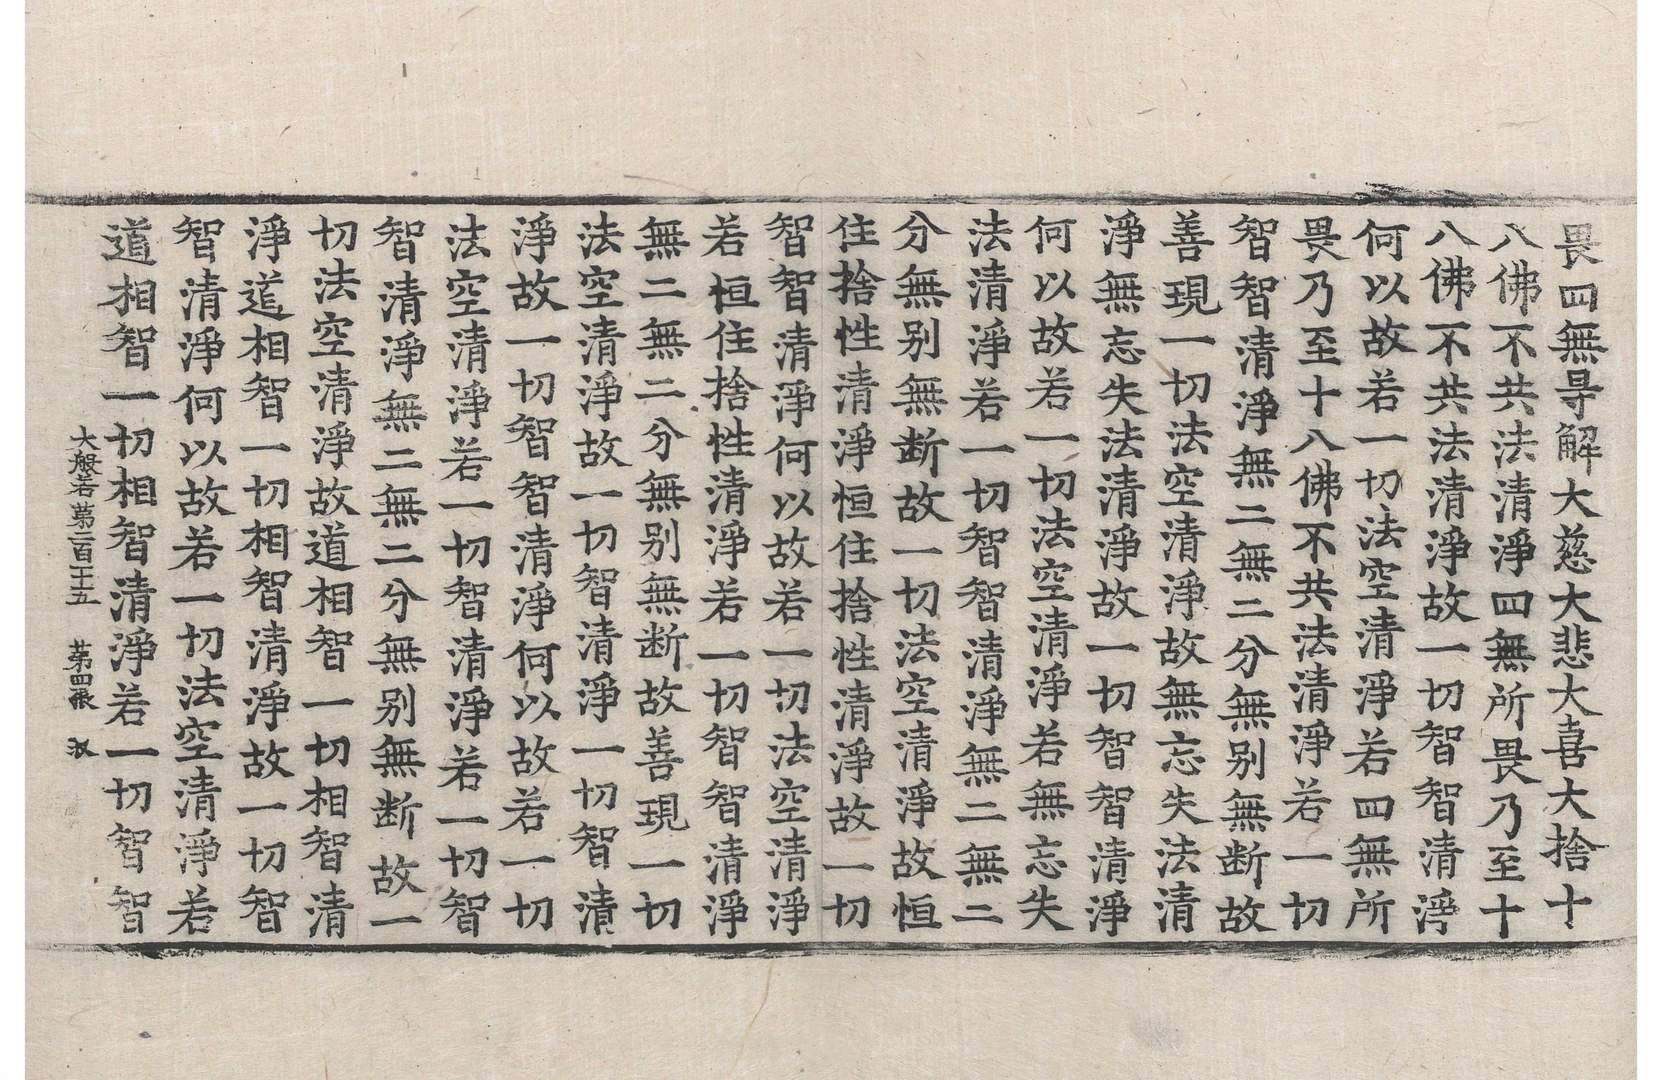 畏四無㝵解大慈大悲大喜大捨十
八佛不共法清淨四無所畏乃至十
八佛不共法清淨故一切智智清淨
何以故若一切法空清淨若四無所
畏乃至十八佛不共法清淨若一切
智智清淨無二無二分無別無断故
善現一切法空清淨故無忘失法清
淨無忘失法清淨故一切智智清淨
何以故若一切法空清淨若無忘失
法清淨若一切智智清淨無二無二
分無別無断故一切法空清淨故恒
住捨性清淨恒住捨性清淨故一切
智智清淨何以故若一切法空清淨
若恒住捨性清淨若一切智智清淨
無二無二分無別無断故善現一切
法空清淨故一切智清淨一切智清
淨故一切智智清淨何以故若一切
法空清淨若一切智清淨若一切智
智清淨無二無二分無別無断故一
切法空清淨故道相智一切相智清
淨道相智一切相智清淨故一切智
智清淨何以故若一切法空清淨若
道相智一切相智清淨若一切智智
大般若第二百十五 第四張 収